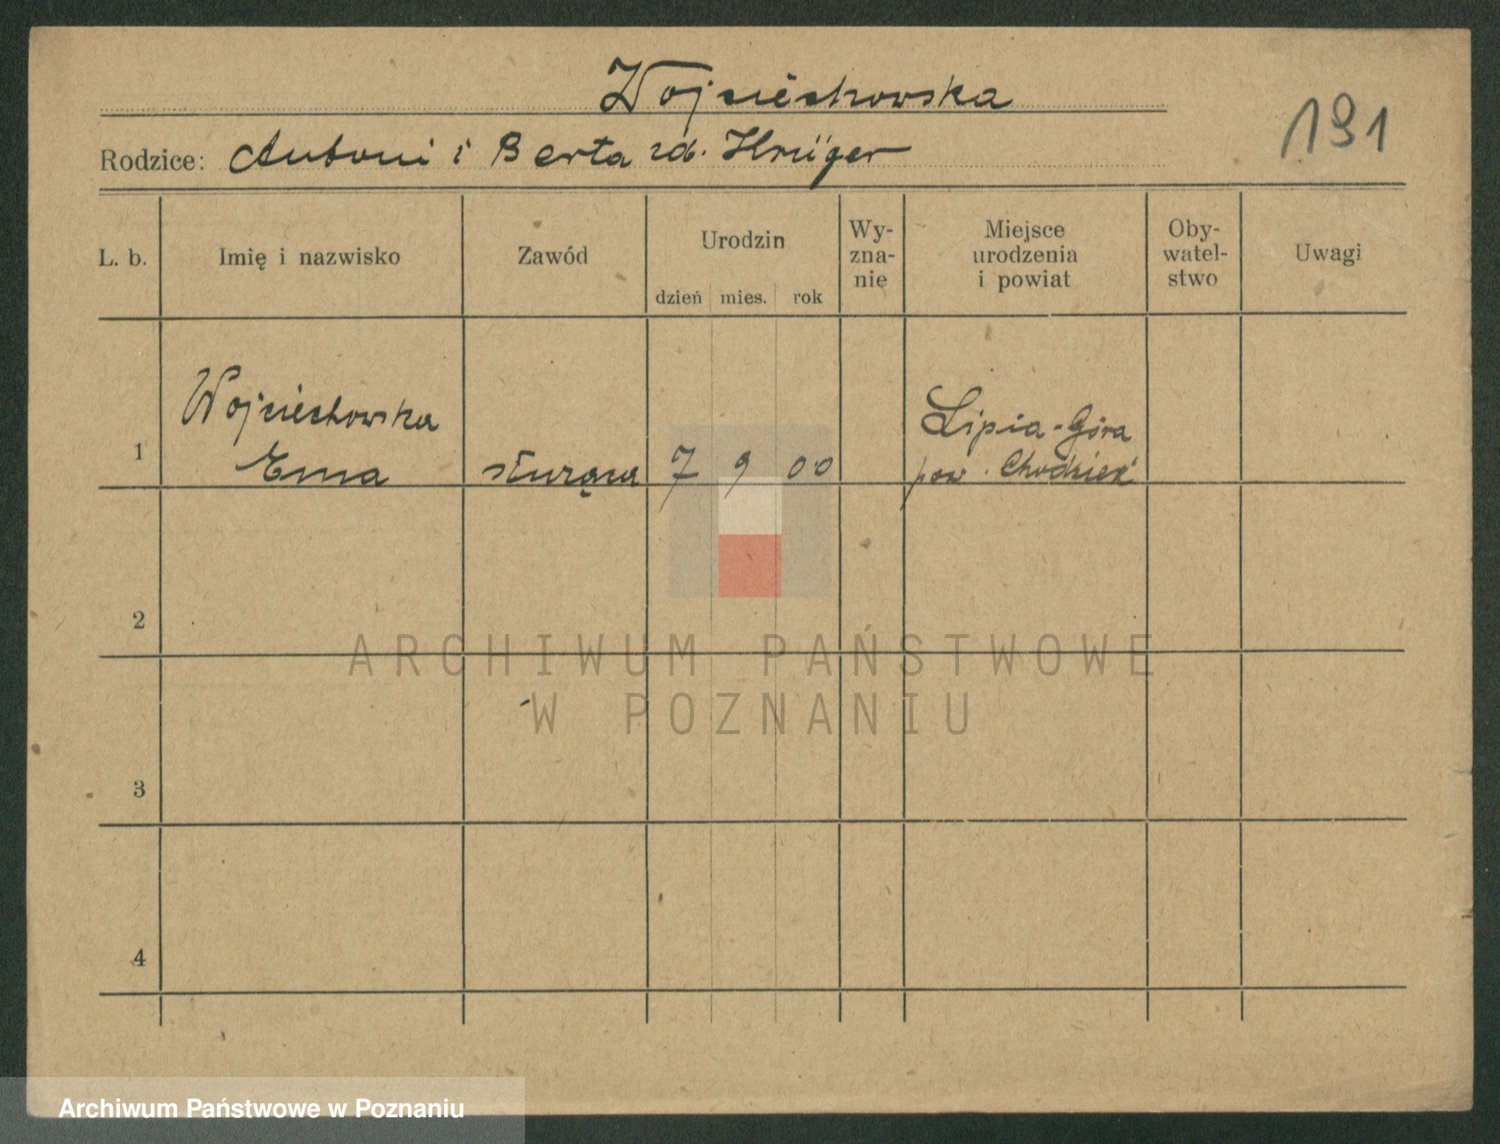 Wojciechowska
191
Rodzice: Antoni i Berta zd. Krüger
L. b. Imię i nazwisko Zawód Urodzin dzień mies. rok Wy-zna-nie Miejsce urodzenia i powiat Oby-watel-stwo Uwagi
Wojciechowska Lipia-Góra
1 Ema służąca 7 9 00 pow. Chodzież
2
3
4
ARCHIWUM PAŃSTWOWE
W POZNANIU
Archiwum Państwowe w Poznaniu